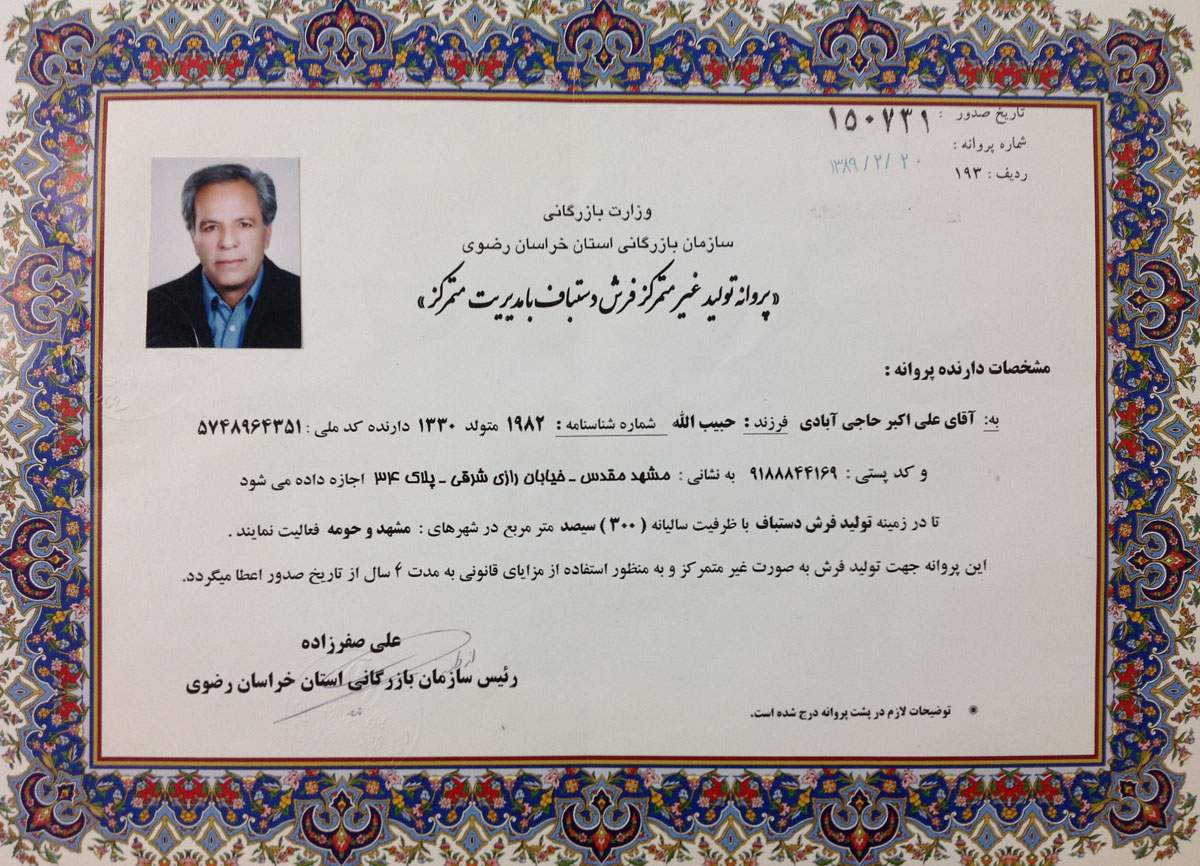 تاریخ صدور :
۱۵۰۷۳۱
شماره پروانه :
۱۳۸۹/۲/۲۰
ردیف : ۱۹۳
وزارت بازرگانی
سازمان بازرگانی استان خراسان رضوی
«پروانه تولید غیر متمرکز فرش دستباف با مدیریت متمرکز»
مشخصات دارنده پروانه :
به: آقای علی اکبر حاجی آبادی فرزند : حبیب الله شماره شناسنامه : ۱۹۸۲ متولد ۱۳۳۰ دارنده کد ملی : ۵۷۴۸۹۶۴۳۵۱
و کد پستی : ۹۱۸۸۸۴۴۱۶۹ به نشانی : مشهد مقدس ـ خیابان رازی شرقی ـ پلاک ۳۴ اجازه داده می شود
تا در زمینه تولید فرش دستباف با ظرفیت سالیانه ( ۳۰۰ ) سیصد متر مربع در شهرهای : مشهد و حومه فعالیت نمایند .
این پروانه جهت تولید فرش به صورت غیر متمرکز و به منظور استفاده از مزایای قانونی به مدت ۴ سال از تاریخ صدور اعطا میگردد.
علی صفرزاده
رئیس سازمان بازرگانی استان خراسان رضوی
توضیحات لازم در پشت پروانه درج شده است.